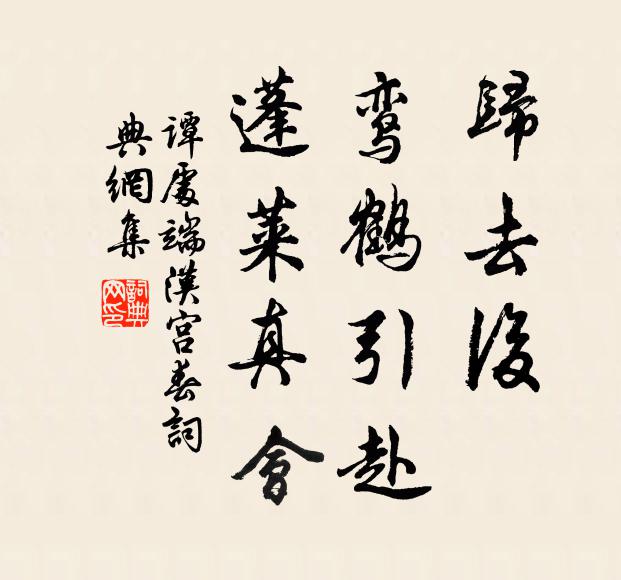 歸去後
鸾鶴引赴
蓬萊真會
譚處端漢宮春詞
典網集
詞典網印